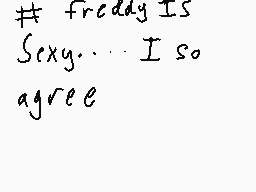 # freddy Is
Sexy..... I so
agree